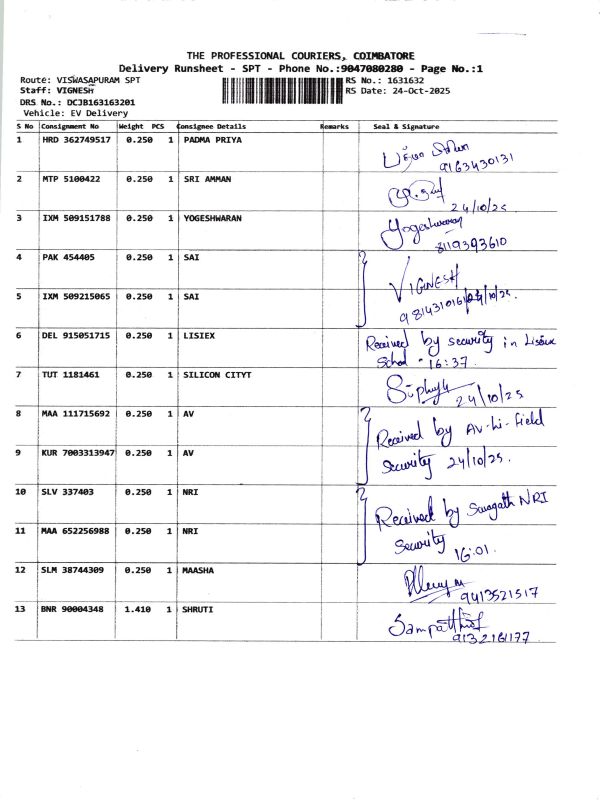 THE PROFESSIONAL COURIERS, COIMBATORE
Delivery Runsheet - SPT - Phone No.:9047080280 - Page No.:1
Route: VISWASAPURAM SPT
RS No.: 1631632
Staff: VIGNESH
RS Date: 24-Oct-2025
DRS No.: DCJB163163201
Vehicle: EV Delivery
S No Consignment No Weight PCS Consignee Details Remarks Seal & Signature
1 HRD 362749517 0.250 1 PADMA PRIYA
9163430131
2 MTP 5100422 0.250 1 SRI AMMAN
24/10/25
3 IXM 509151788 0.250 1 YOGESHWARAN Yogeshwaran
8119393610
4 PAK 454405 0.250 1 SAI
VIGNESH
5 IXM 509215065 0.250 1 SAI
24/10/25.
6 DEL 915051715 0.250 1 LISIEX Received by security in
School - 16:37
7 TUT 1181461 0.250 1 SILICON CITYT
24/10/25
8 MAA 111715692 0.250 1 AV
Received by AV-hi-field
9 KUR 7003313947 0.250 1 AV
Security 24/10/25.
10 SLV 337403 0.250 1 NRI
Received by Swagath NRI
11 MAA 652256988 0.250 1 NRI
Security 16:01.
12 SLM 38744309 0.250 1 MAASHA
9413521517
13 BNR 90004348 1.410 1 SHRUTI
9132161177